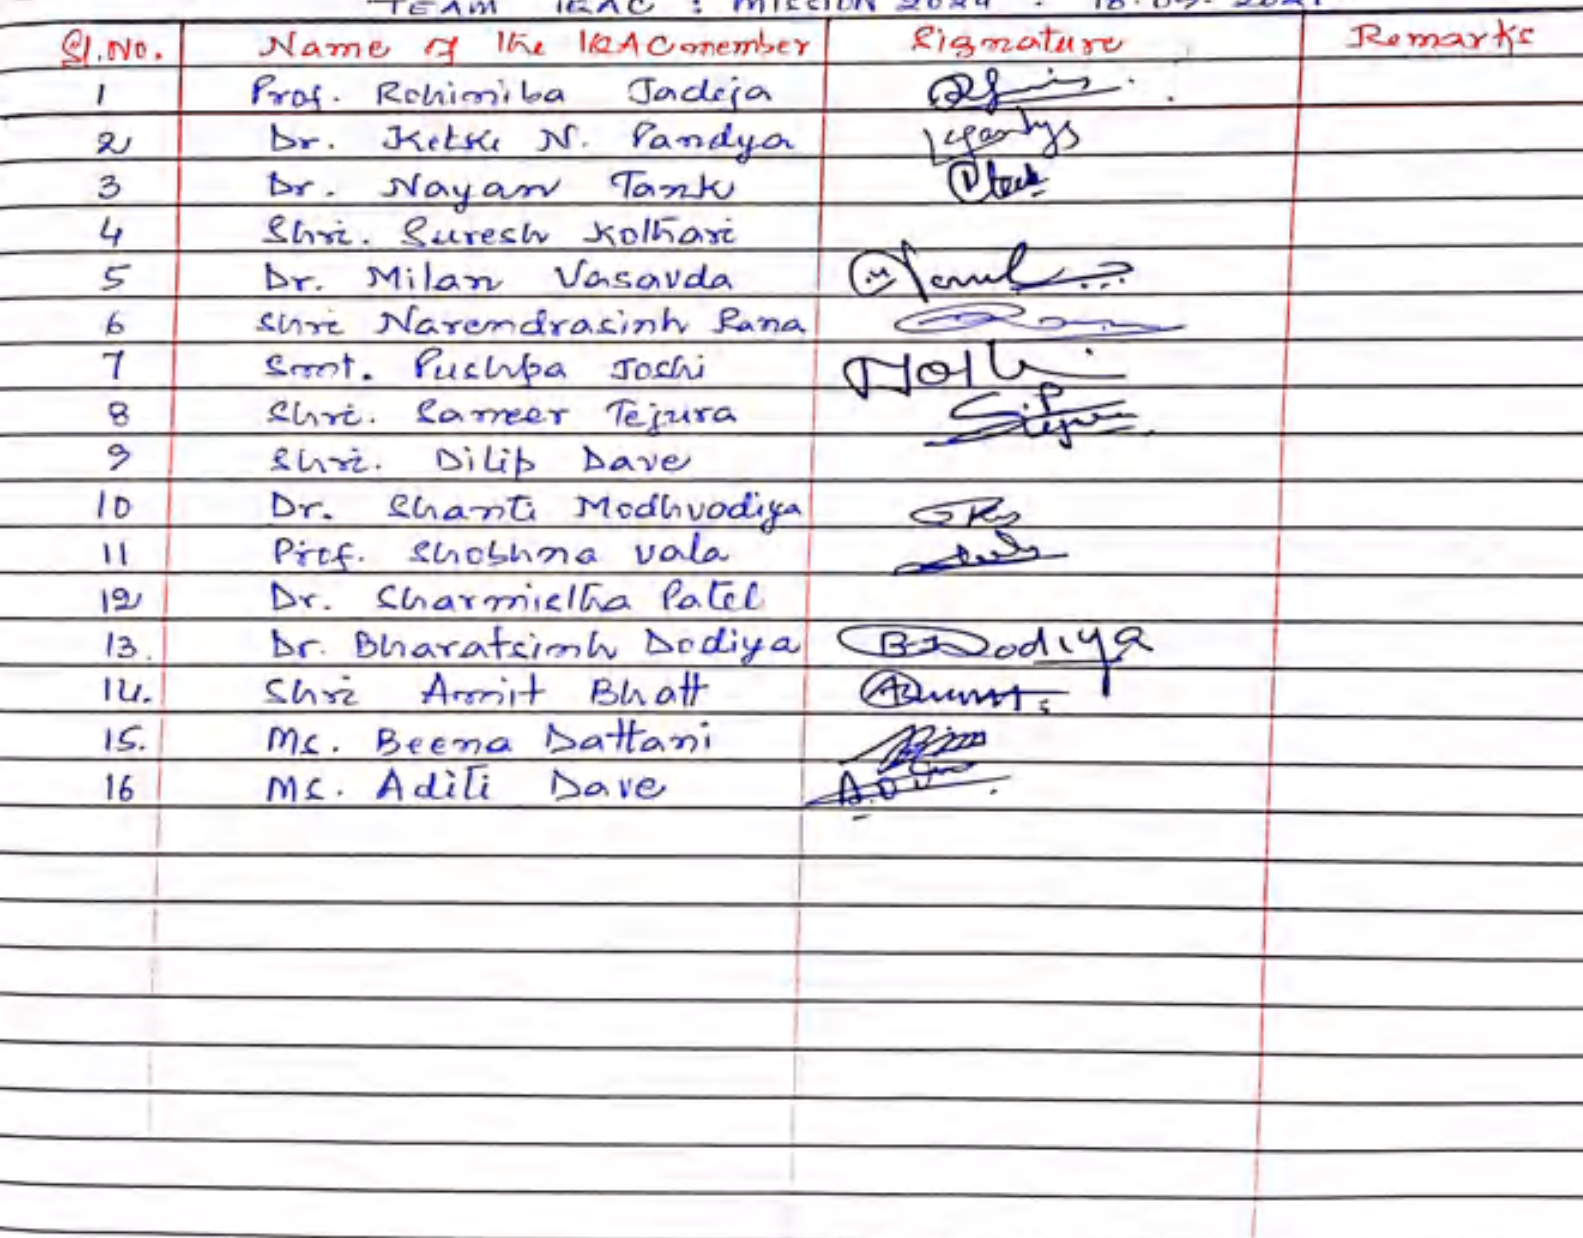 TEAM IQAC : MISSION 2024 :
Sl.No. Name of the IQAC member Signature Remarks
1 Prof. Rohiniba Jadeja
2 Dr. Ketki N. Pandya
3 Dr. Nayan Tank
4 Shri. Suresh Kothari
5 Dr. Milan Vasavda
6 Shri Narendrasinh Rana
7 Smt. Pushpa Joshi
8 Shri. Sameer Tejura
9 Shri. Dilip Dave
10 Dr. Shanti Modhvadiya
11 Prof. Shobhna Vala
12 Dr. Sharmistha Patel
13. Dr. Bharatsinh Dodiya B Dodiya
14. Shri Amit Bhatt
15. Ms. Beena Dattani
16 Ms. Aditi Dave